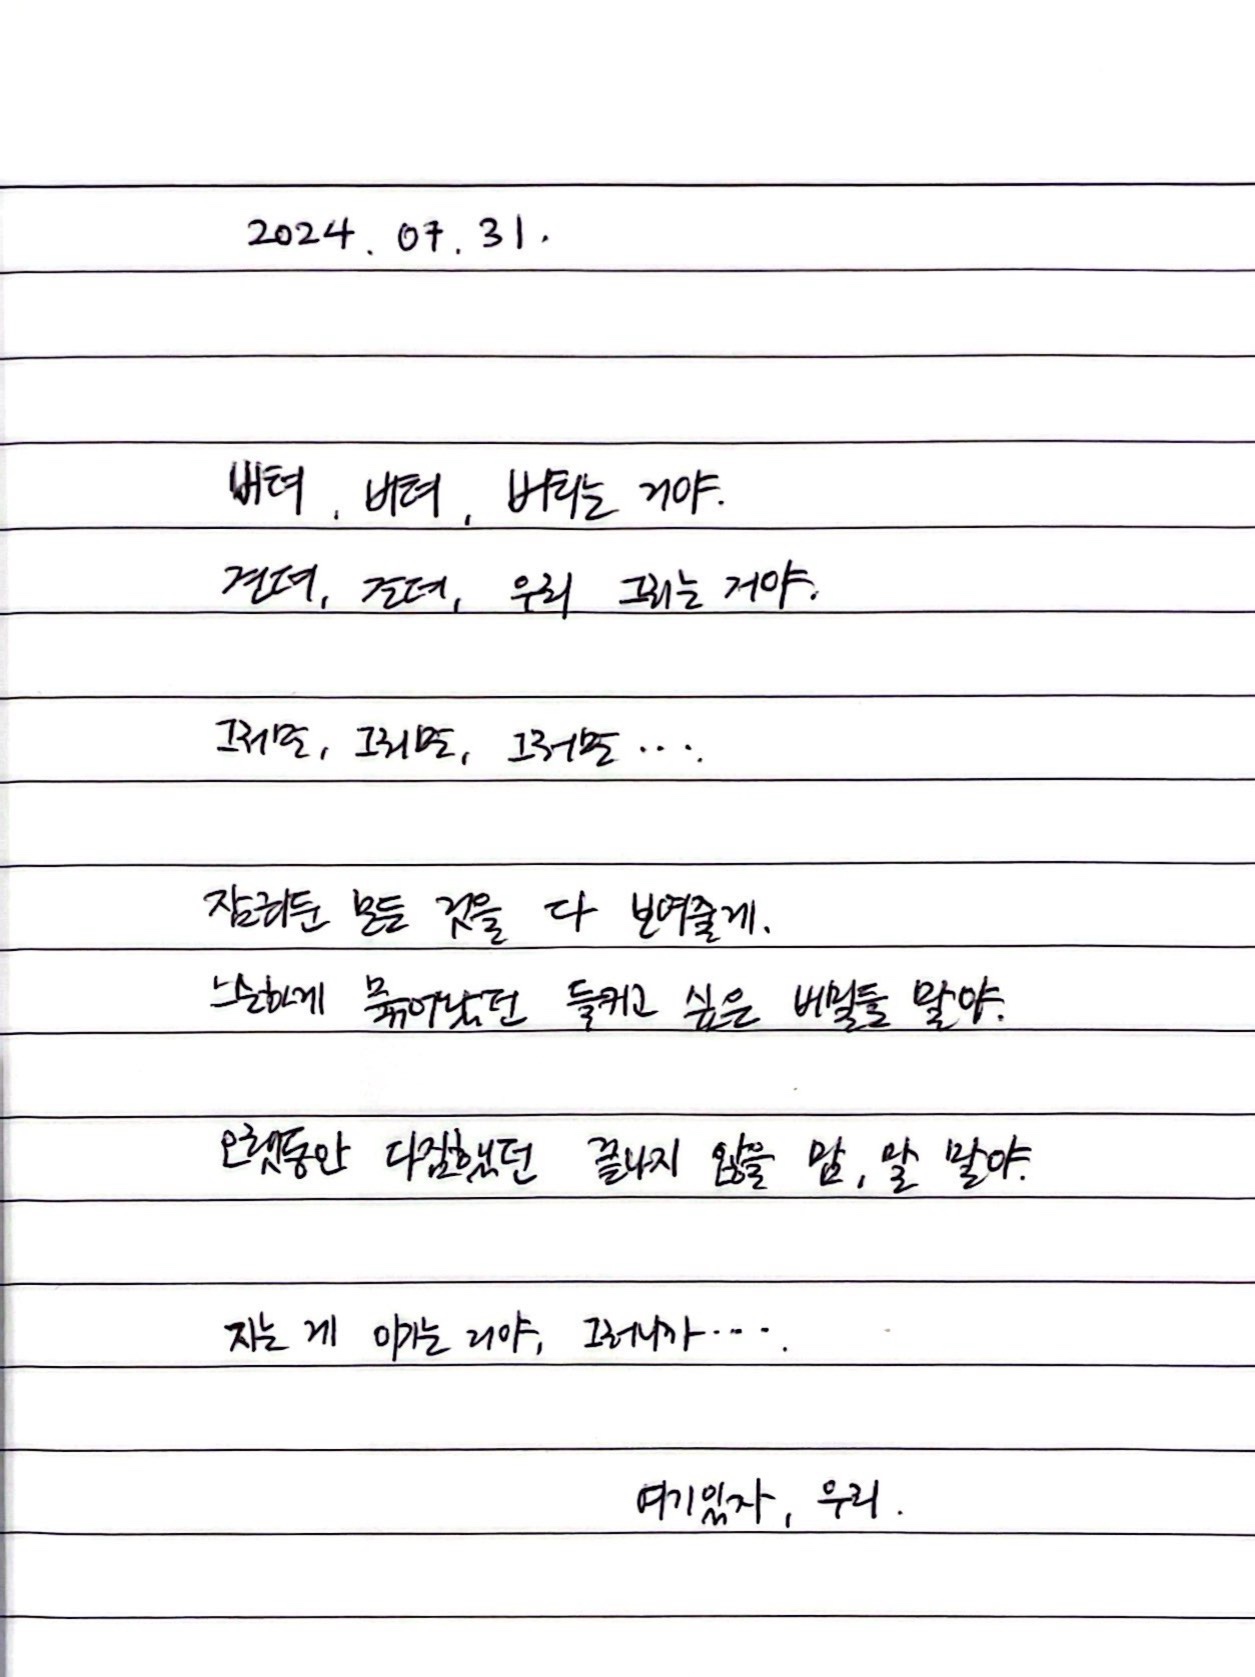 2024. 07. 31.
버텨, 버텨, 버티는 거야.
견뎌, 견뎌, 우리 그러는 거야.
그러면, 그러면, 그러면 ….
잠궈둔 모든 것을 다 보여줄게.
느슨하게 묶어놨던 들키고 싶은 비밀들 말야.
오랫동안 다짐했던 끝나지 않을 맘, 말 말야.
지는 게 이기는 거야, 그러니까 ….
여기있자, 우리.